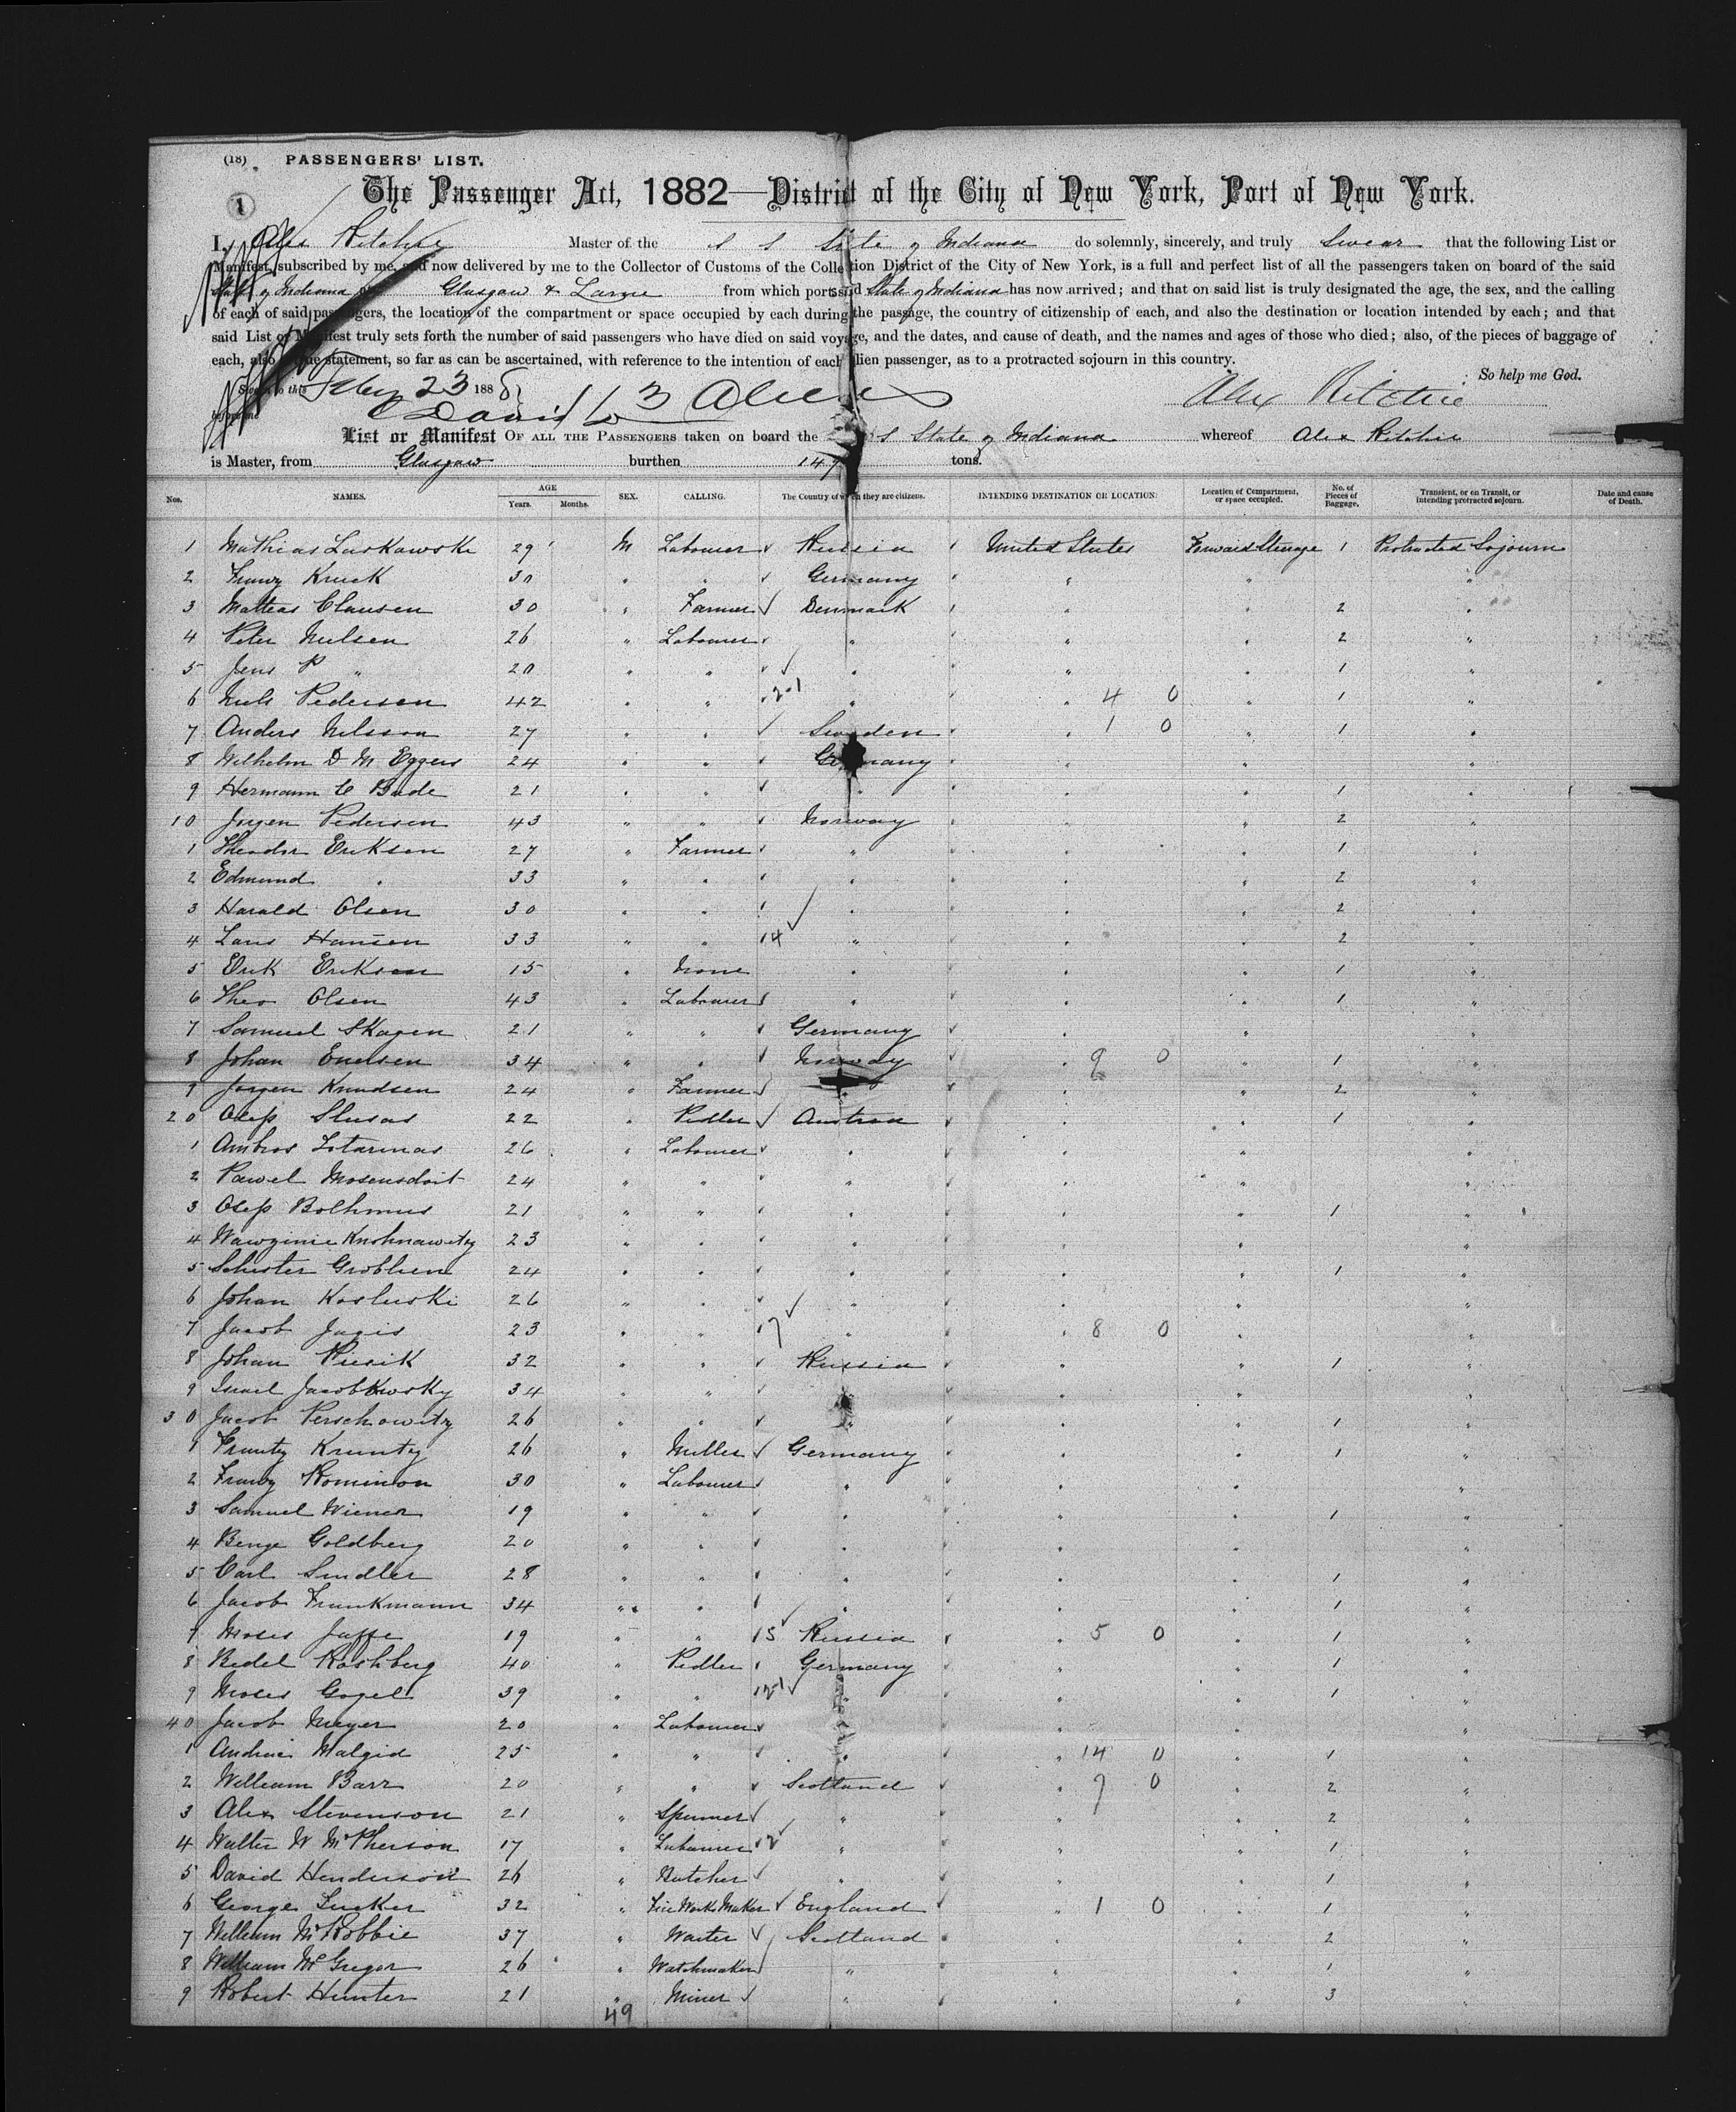 (18) PASSENGERS' LIST.
1
The Passenger Act, 1882—District of the City of New York, Port of New York.
I, Alex Ritchie Master of the S S State of Indiana do solemnly, sincerely, and truly Swear that the following List or
Manifest, subscribed by me, and now delivered by me to the Collector of Customs of the Collection District of the City of New York, is a full and perfect list of all the passengers taken on board of the said
State of Indiana Glasgow & Larne from which port said State of Indiana has now arrived; and that on said list is truly designated the age, the sex, and the calling
of each of said passengers, the location of the compartment or space occupied by each during the passage, the country of citizenship of each, and also the destination or location intended by each; and that
said List or Manifest truly sets forth the number of said passengers who have died on said voyage, and the dates, and cause of death, and the names and ages of those who died; also, of the pieces of baggage of
each, also a true statement, so far as can be ascertained, with reference to the intention of each alien passenger, as to a protracted sojourn in this country.
So help me God.
Sworn to this 23 188
before me David Alex Ritchie
List or Manifest OF ALL THE PASSENGERS taken on board the S S State of Indiana whereof Alex Ritchie
is Master, from Glasgow burthen 149 tons.
Nos. NAMES. AGE Years. Months. SEX. CALLING. The Country of which they are citizens. INTENDING DESTINATION OR LOCATION. Location of Compartment, or space occupied. No. of Pieces of Baggage. Transient, or on Transit, or intending protracted sojourn. Date and cause of Death.
1 Mathias Laskowski 29 M Labourer Russia United States Forward Steerage 1 Protracted Sojourn
2 Franz Kruck 30 " " Germany " " "
3 Matteas Clausen 30 " Farmer Denmark " " 2 "
4 Peter Nielsen 26 " Labourer " " " 2 "
5 Jens P " 20 " " " " " 1 "
6 Niels Pedersen 42 " " 2-1 " " 4 0 " 1 "
7 Anders Nilsson 27 " " Sweden " 1 0 " 1 "
8 Wilhelm D M Eggers 24 " " Germany " " "
9 Hermann C Bade 21 " " " " " 1 "
10 Jorgen Pedersen 43 " " Norway " " 2 "
1 Theodor Eriksen 27 " Farmer " " " 1 "
2 Edmund " 33 " " " " " 2 "
3 Harald Olsen 30 " " " " " 2 "
4 Lars Hansen 33 " " 14 " " " 2 "
5 Erik Eriksen 15 " None " " " 1 "
6 Theo Olsen 43 " Labourer " " " 1 "
7 Samuel Skagen 21 " " Germany " " "
8 Johan Enersen 34 " " Norway " 9 0 " 1 "
9 Jorgen Knudsen 24 " Farmer " " " 2 "
20 Osep Slusas 22 " Pedler Austria " " 1 "
1 Ambros 26 " Labourer " " " "
2 Pawel 24 " " " " " "
3 Osep 21 " " " " " 1 "
4 23 " " " " " "
5 24 " " " " " 1 "
6 Johan Kosluski 26 " " " " " "
7 Jacob Jagis 23 " " 7 " " 8 0 " "
8 Johan Piesik 32 " " Russia " " 1 "
9 Israel Jacobkowsky 34 " " " " " "
30 Jacob Perschowitz 26 " " " " " 1 "
1 Krunty 26 " Miller Germany " " 1 "
2 Franz Rominon 30 " Labourer " " " "
3 Samuel Wiener 19 " " " " " 1 "
4 Benge Goldberg 20 " " " " " "
5 Carl Sendler 28 " " " " " 1 "
6 Jacob Frankmann 34 " " " " " 1 "
7 Moses Jaffe 19 " " 15 Russia " 5 0 " 1 "
8 Bedel Rashberg 40 " Pedler Germany " " 1 "
9 Moses Gogel 39 " " 12-1 " " " 1 "
40 Jacob Meyer 20 " Labourer " " " "
1 Andrei Malgid 25 " " " " 14 0 " 1 "
2 William Barr 20 " " Scotland " 9 0 " 2 "
3 Alex Stevenson 21 " Spinner " " " 2 "
4 Walter W McPherson 17 " Labourer 2 " " " 1 "
5 David Henderson 26 " Butcher " " " 1 "
6 George Tucker 32 " Fire Works Maker England " 1 0 " 1 "
7 William McRobbie 37 " Waiter Scotland " " 2 "
8 William McGregor 26 " Watchmaker " " " 1 "
9 Robert Hunter 21 " Miner " " " 3 "
49